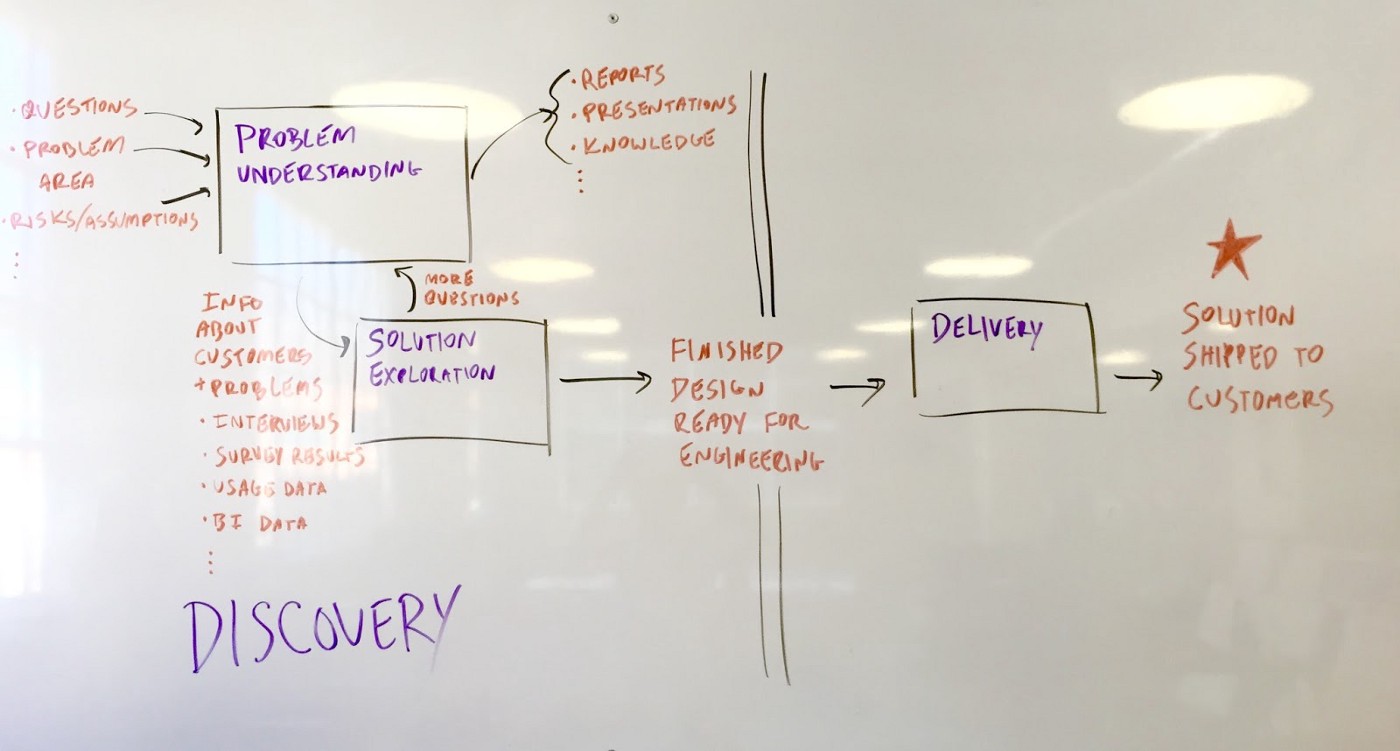 • QUESTIONS
• PROBLEM
AREA
• RISKS/ASSUMPTIONS
PROBLEM
UNDERSTANDING
• REPORTS
• PRESENTATIONS
• KNOWLEDGE
MORE
QUESTIONS
INFO
ABOUT
CUSTOMERS
+ PROBLEMS
• INTERVIEWS
• SURVEY RESULTS
• USAGE DATA
• BI DATA
SOLUTION
EXPLORATION
FINISHED
DESIGN
READY FOR
ENGINEERING
DELIVERY
SOLUTION
SHIPPED TO
CUSTOMERS
DISCOVERY